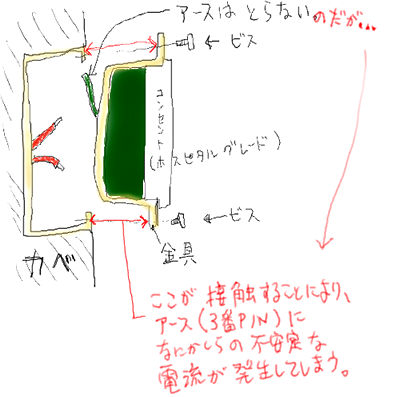 アースは とらない のだが...
← ビス
コンセント
(ホスピタルグレード)
← ビス
金具
カベ
ここが 接触することにより、
アース(3番PIN)に
なにかしらの 不安定な
電流が 発生してしまう。